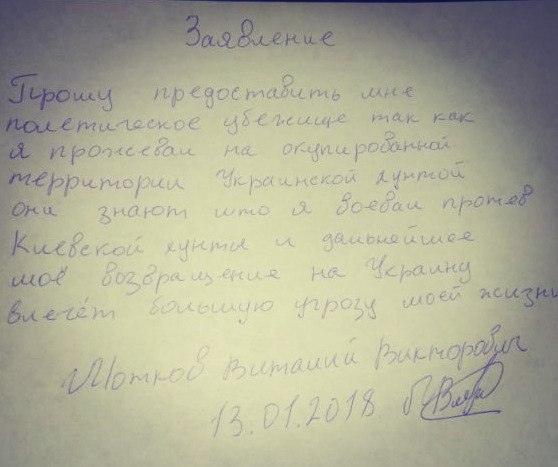 Заявление
Прошу предоставить мне
полетическое убежище так как
я прожевал на окупированной
территории Украинской хунтой
они знают што я воевал протев
Киевской хунты и дальнейшее
моё возвращение на Украину
влечёт большую угрозу моей жизни
Мотков Виталий Викторович
13.01.2018